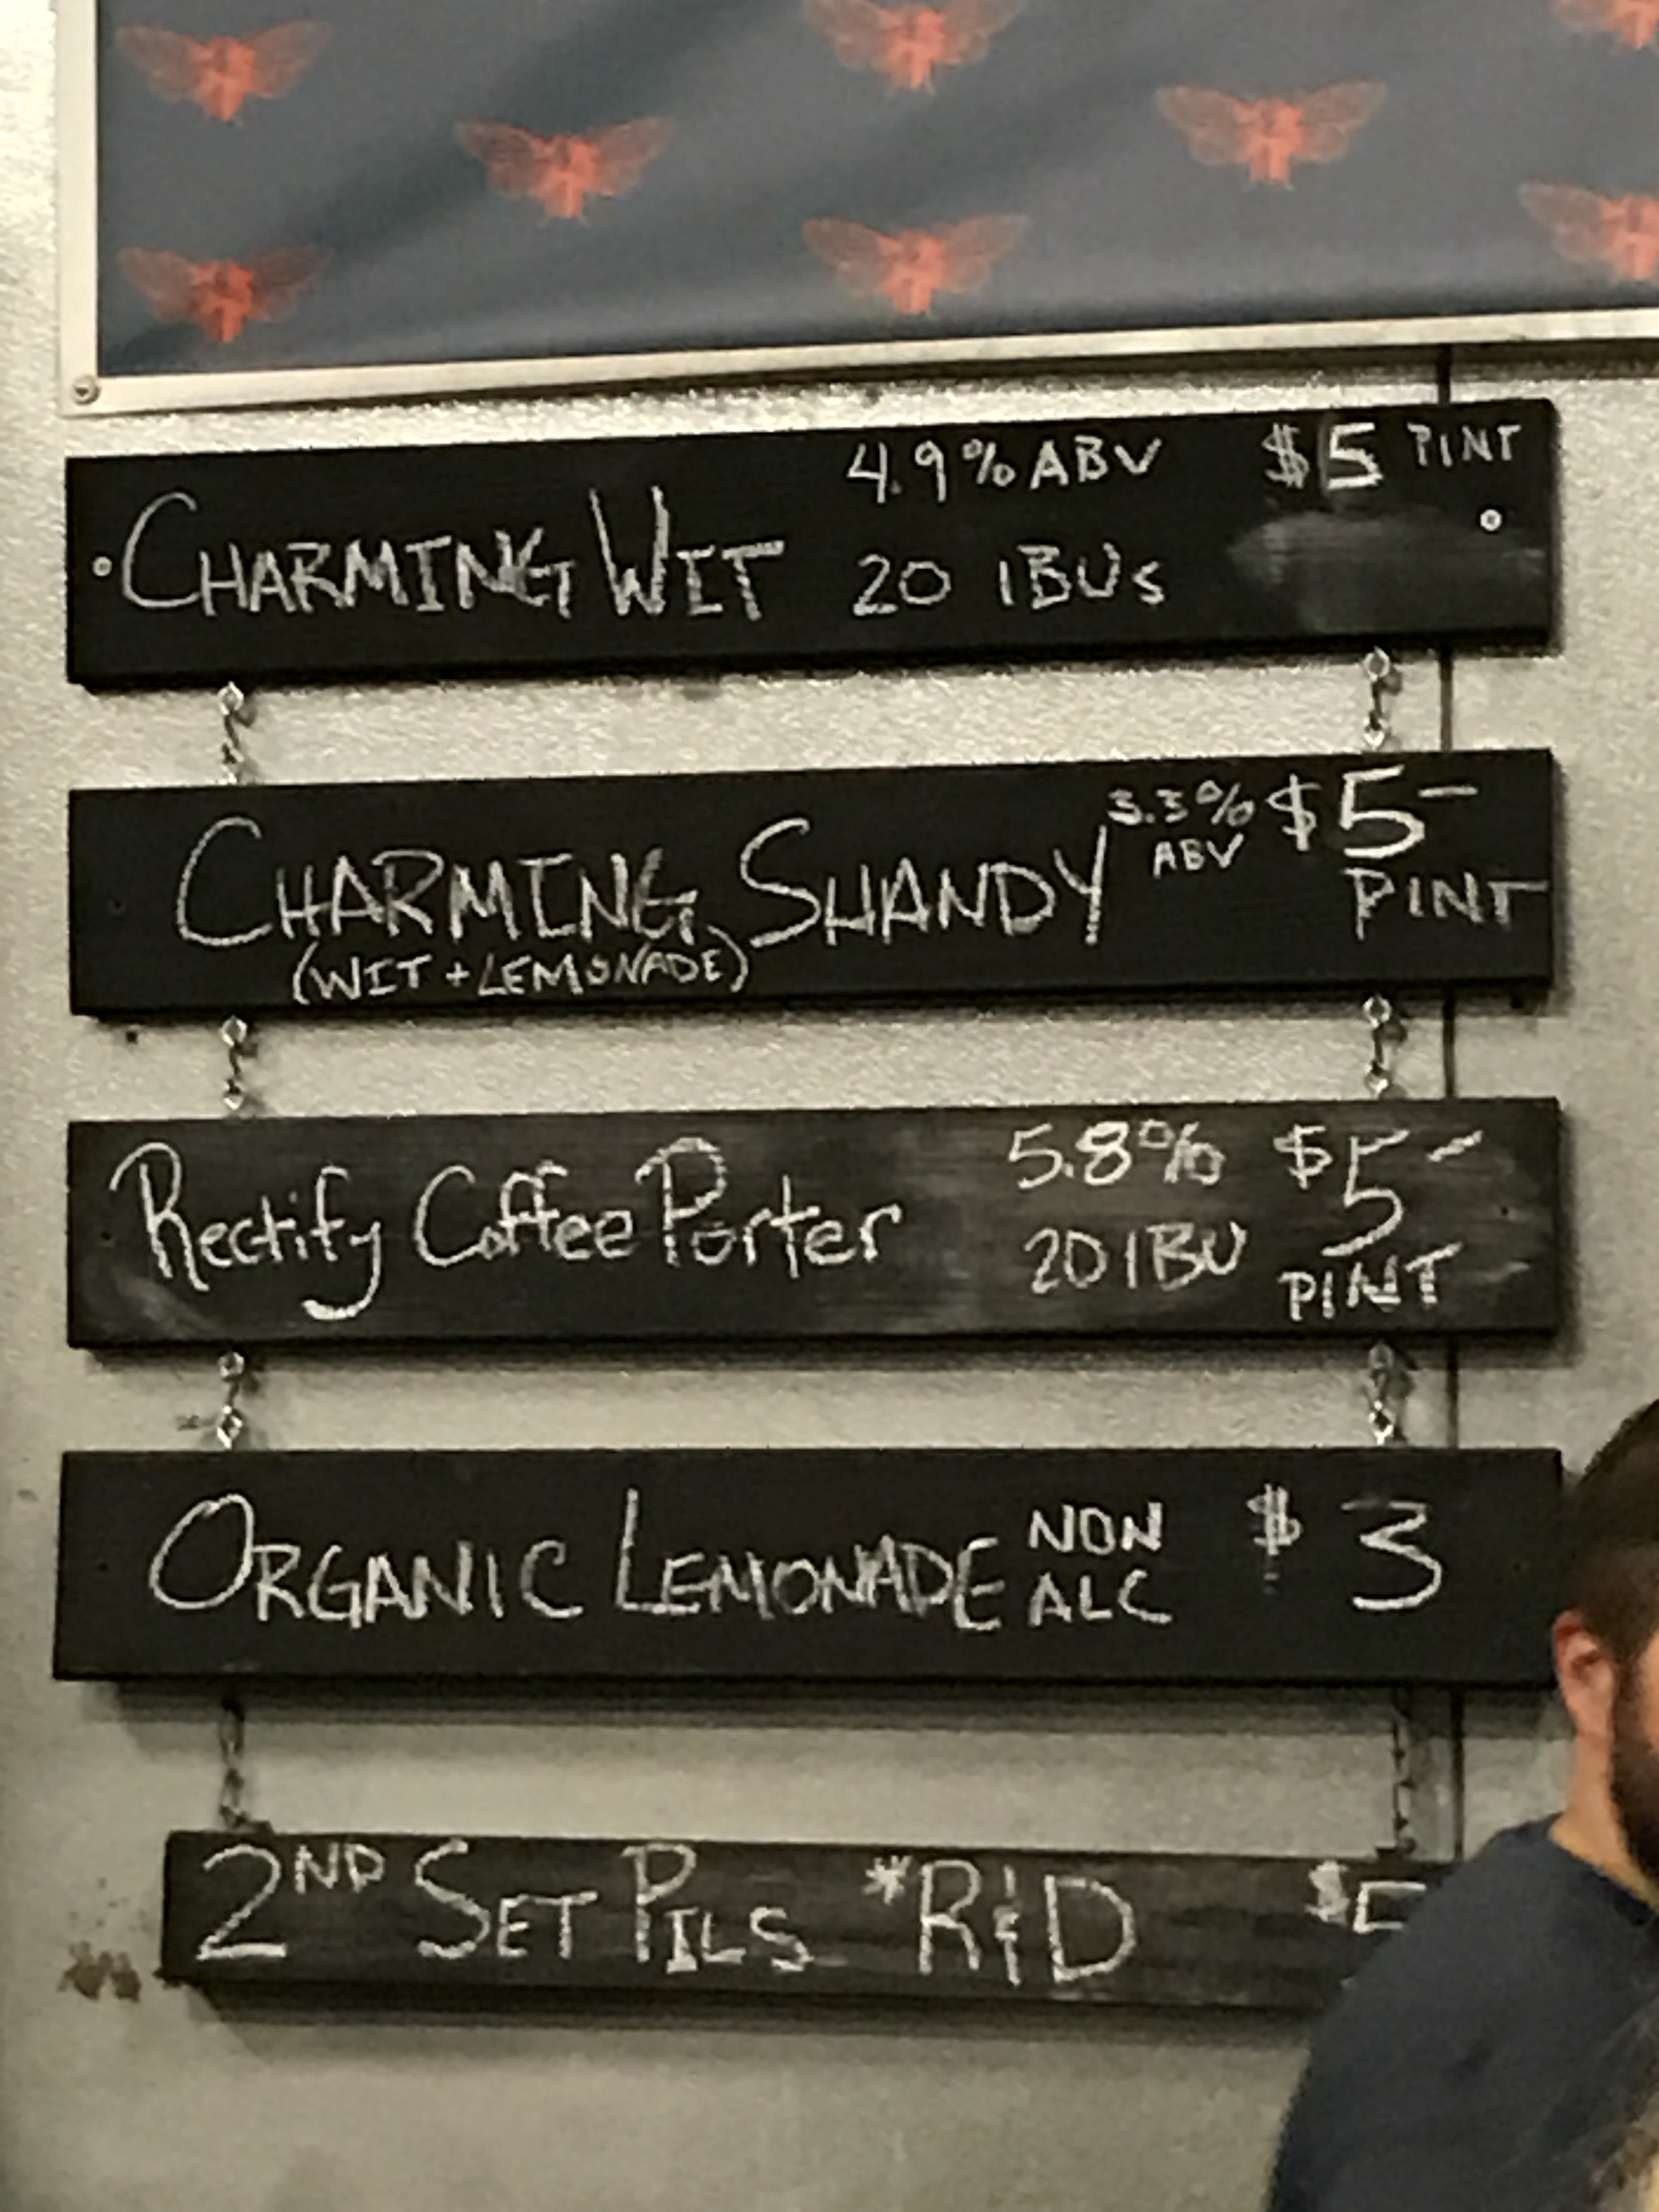 CHARMING WIT 4.9% ABV $5 PINT
20 IBUs
CHARMING SHANDY 3.3% ABV $5- PINT
(WIT + LEMONADE)
Rectify Coffee Porter 5.8% $5- PINT
20 IBU
ORGANIC LEMONADE NON ALC $3
2ND SET PILS *R&D